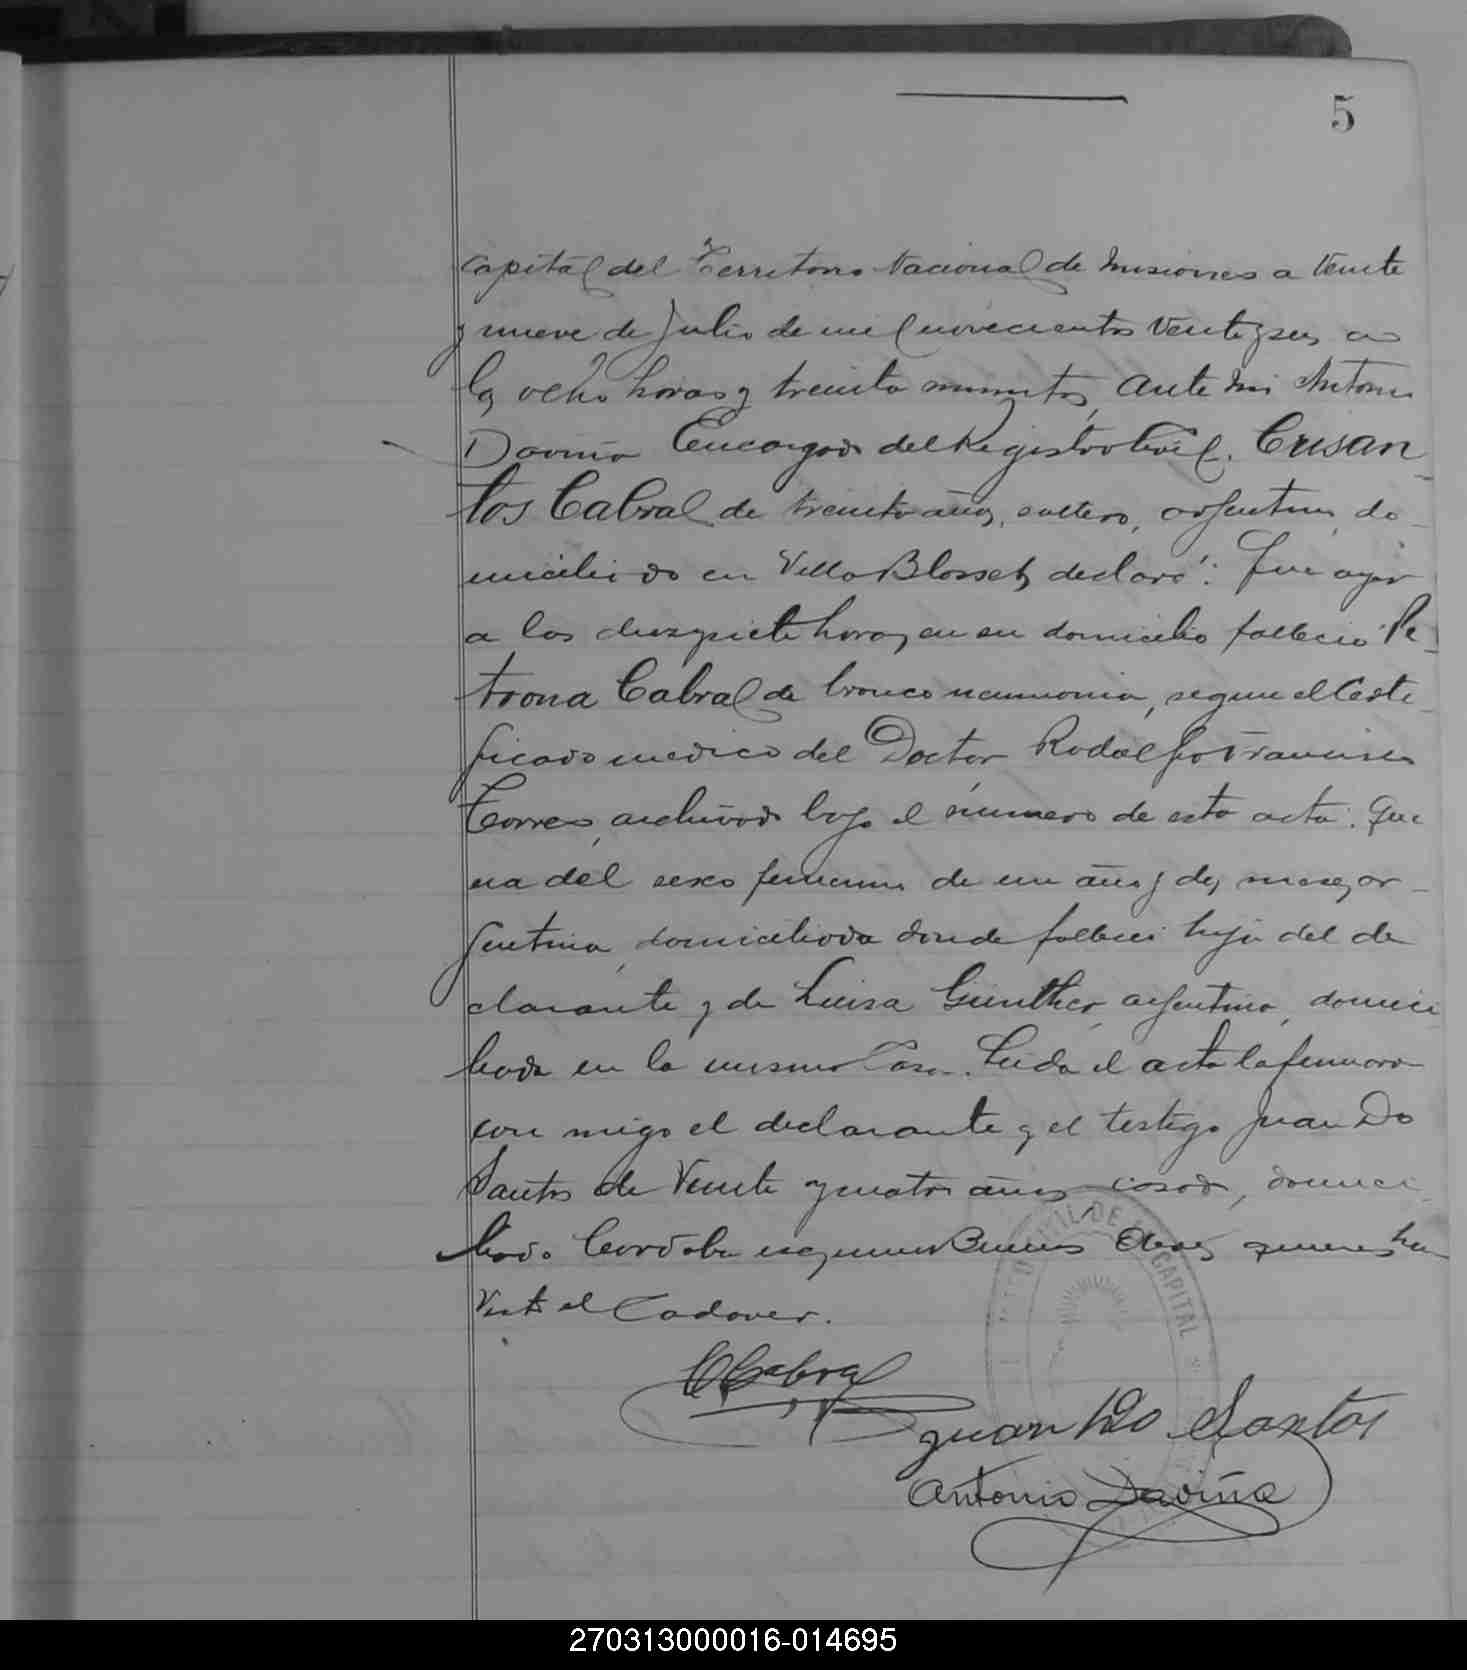 5
Capital del Territorio Nacional de Misiones a Veinte
y nueve de Julio de mil novecientos veinte y seis, a
las ocho horas y treinta minutos, ante mi Antonio
Daviña Encargado del Registro Civil. Crisan-
tos Cabral de treinta años, soltero, argentino, do-
miciliado en Villa Blosset, declaró: Que ayer
a las diez y siete horas, en su domicilio fallecio Pe-
trona Cabral de bronco neumonia, segun el Certi-
ficado medico del Doctor Rodolfo Francisco
Torres, archivado bajo el número de esta acta. Que
era del sexo femenino de un año y dos meses, ar-
gentina, domiciliada donde falleció hija del de
clarante y de Luisa Günther, argentina, domici
liada en la misma Casa. Leida el acta la firmaron
con migo el declarante y el testigo Juan Do
Santos de Veinte y cuatro años casado, domici
liado Cordoba esquina Buenos Aires, quienes han
Visto el Cadaver.
CCabral
Juan Do Santos
Antonio Daviña
CIVIL DE CAPITAL
270313000016-014695